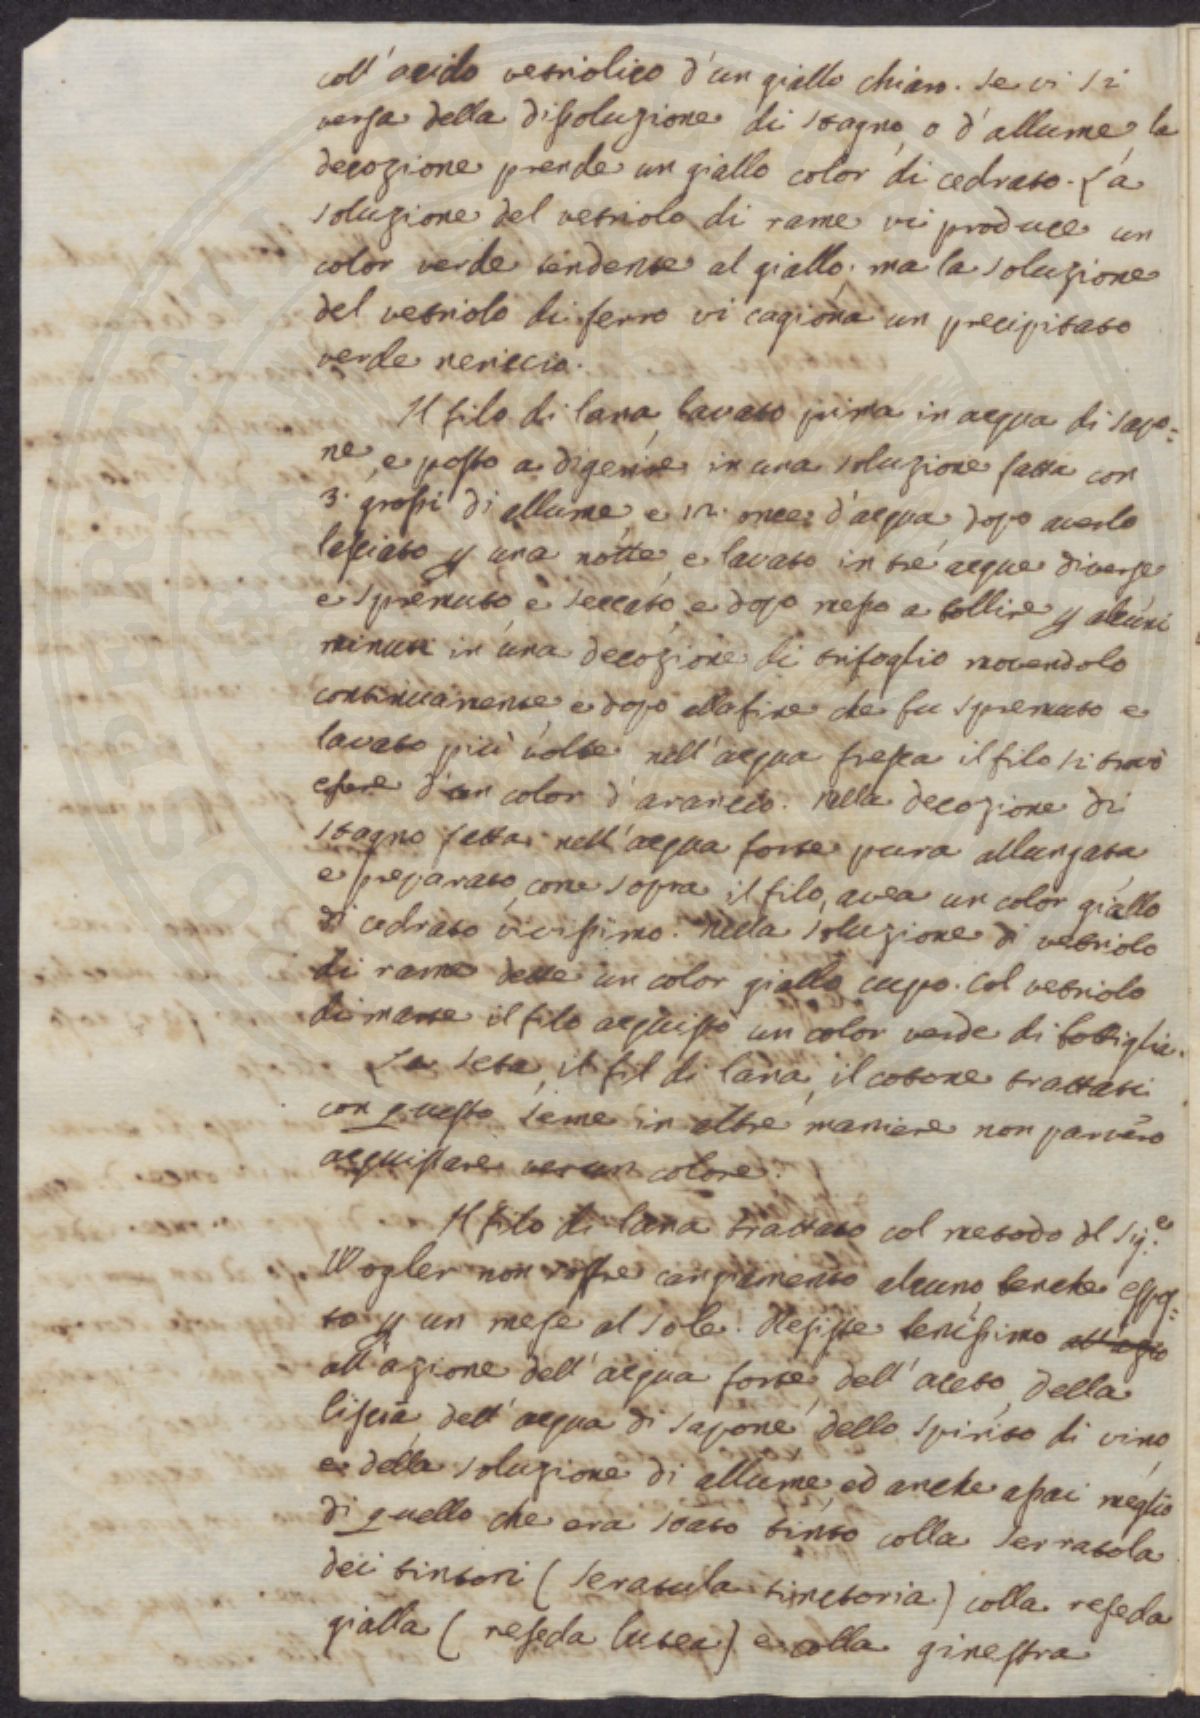 coll'acido vetriolico d'un giallo chiaro. se vi si
versa della dissoluzione di stagno, o d'allume, la
decozione prende un giallo color di cedrato. La
soluzione del vetriolo di rame vi produce un
color verde tendente al giallo; ma la soluzione
del vetriolo di ferro vi cagiona un precipitato
verde nericcio.
Il filo di lana, lavato prima in acqua di sapo=
ne, e posto a digerire in una soluzione fatta con
3. grossi di allume, e 12. once d'acqua, dopo averlo
lasciato p una notte, e lavato in tre acque diverse
e spremuto e seccato, e dopo messo a bollire p alcuni
minuti in una decozione di trifoglio movendolo
continuamente, e dopo alla fine che fu spremuto e
lavato più volte nell'acqua fresca il filo si trovò
essere d'un color d'arancio. Nella decozione di
stagno fatta nell'acqua forte pura allungata,
e preparato, come sopra il filo, avea un color giallo
di cedrato vivissimo. Nella soluzione di vetriolo
di rame dette un color giallo cupo. Col vetriolo
di marte il filo acquistò un color verde di bottiglia.
La seta, il fil di lana, il cotone trattati
con questo seme in altre maniere non parvero
acquistare verun colore.
Il filo di lana trattato col metodo del Sig.e
Wogler non soffre cangiamento alcuno benche espos=
to p un mese al sole. Resiste benissimo all'azio
all'azione dell'acqua forte, dell'aceto, della
liscia, dell'acqua di sapone, dello spirito di vino,
e della soluzione di allume, ed anche assai meglio
di quello che era stato tinto colla serratola
dei tintori (seratula tinctoria) colla reseda
gialla (reseda lutea) e colla ginestra